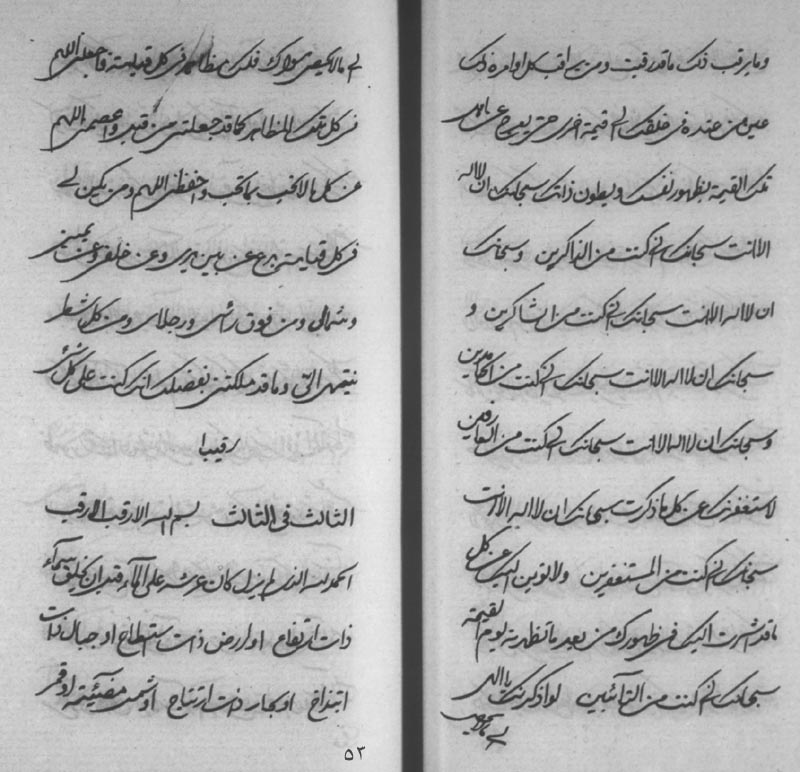 وما يرقب ذلك ما قد رقبت ومن يم اقبـ كل اوامره ذلك
عين من عنده في خلقك الى قيمة اخرى حتى يعرج عن
تلك القيمة بظهور نفسك وبطون ذاتك سبحانك ان لا اله
الا انت سبحانك اني كنت من الذاكرين وسبحانك
ان لا اله الا انت سبحانك اني كنت من الشاكرين و
سبحانك ان لا اله الا انت سبحانك اني كنت من الحامدين
وسبحانك ان لا اله الا انت سبحانك اني كنت من العارفين
لاستغفرنك عن كل ما ذكرت سبحانك ان لا اله الا انت
سبحانك اني كنت من المستغفرين ولاتوبن اليك عن كل
ما قد اشرت اليك في ظهورك من بعد ما تظهرنه يوم القيمة
سبحانك اني كنت من التائبين لو اذكرنك يا الهي
لي ما لا يحيطن سواك فلك مظاهر في كل قيامة فاجعلني اللهم
في كل تلك المظاهر كما قد جعلتني من قبل واعصمني اللهم
عن كل ما لا تحب بما تحب واحفظني اللهم ومن يكن لي
في كل قيامة عن بين يدي وعن خلفي وعن يميني
وشمالي ومن فوق رأسي ورجلاي ومن كل شطر
ينتهي الي وما قد ملكتني بفضلك انك كنت على كل شيء
رقيبا
الثالث في الثالث بسم الله الارقب الارقب
الحمد لله الذي لم يزل كان عرشه على الماء قبل ان يخلق سماء
ذات ارتفاع او ارض ذات استطاح او جبال ذات
ابتذاخ او بحار ذات ارتتاج او شمس مضيئة او قمر
٥٣